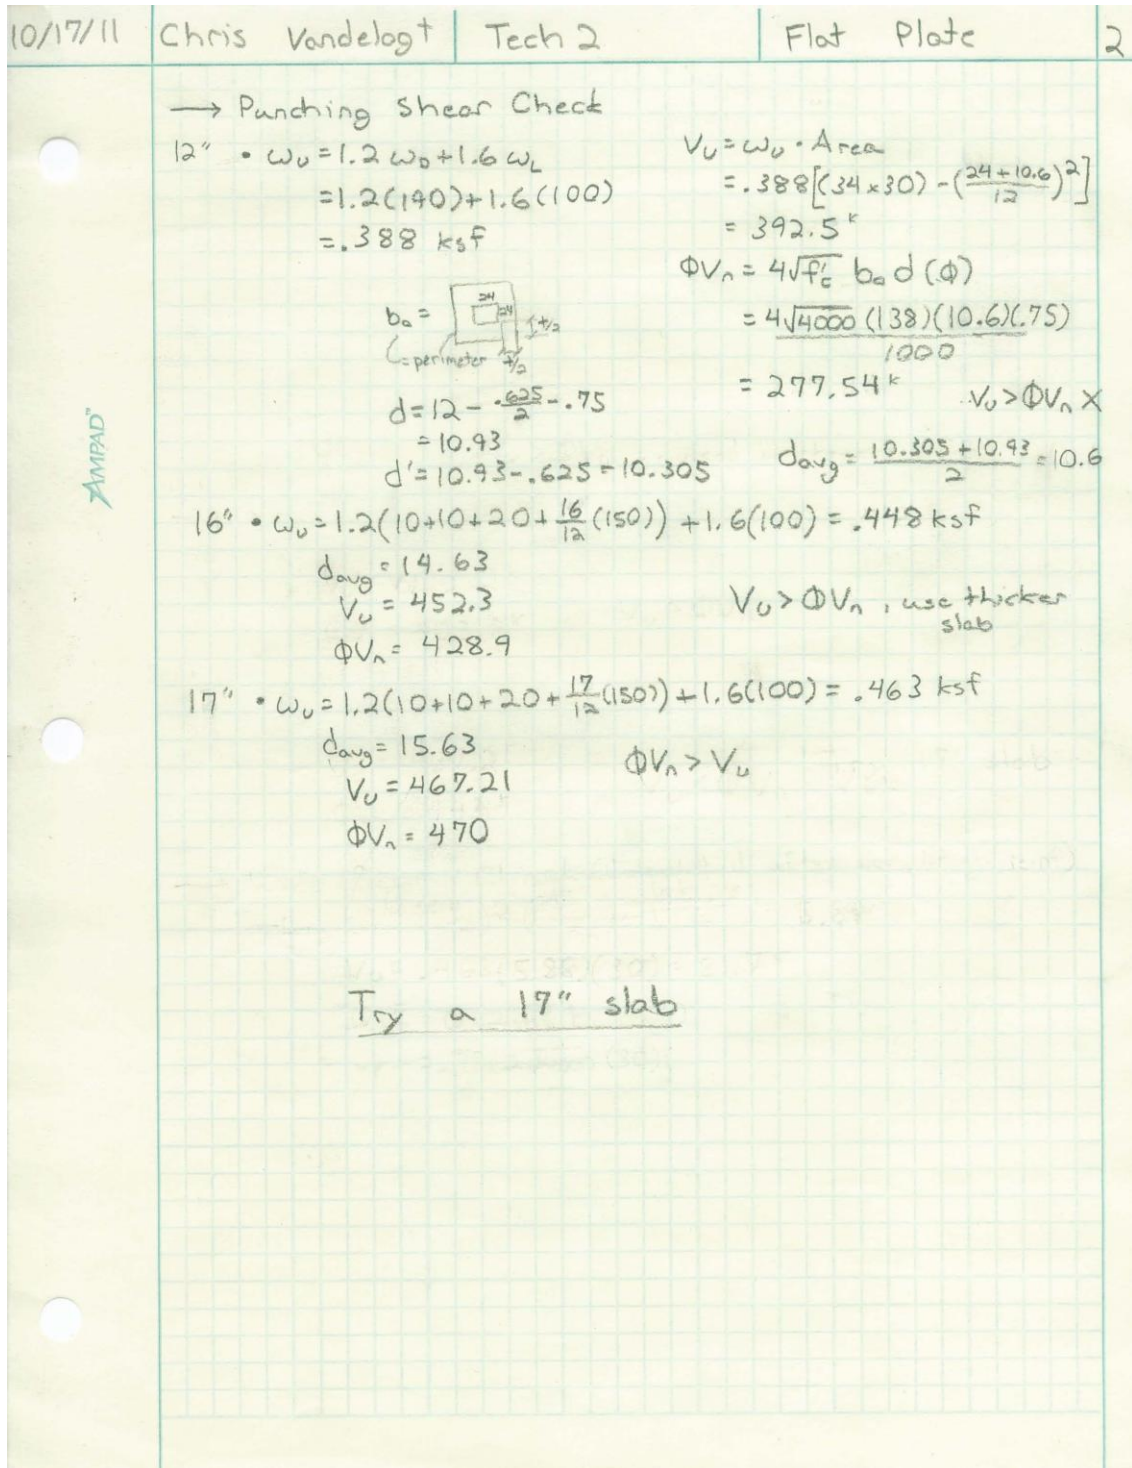 10/17/11 Chris Vandelogt Tech 2 Flat Plate 2
→ Punching Shear Check
12" • ωu = 1.2 ωD + 1.6 ωL
= 1.2(190) + 1.6(100)
= .388 ksf
bo =
24
24
t/2
t/2
perimeter
d = 12 - .625/2 - .75
= 10.93
d' = 10.93 - .625 = 10.305
Vu = ωu • Area
= .388[(34 x 30) - ((24 + 10.6)/12)²]
= 392.5 k
ΦVn = 4√f'c bo d (Φ)
= 4√4000 (138)(10.6)(.75) / 1000
= 277.54 k Vu > ΦVn X
davg = (10.305 + 10.93)/2 = 10.6
AMPAD™
16" • ωu = 1.2(10+10+20+16/12(150)) + 1.6(100) = .448 ksf
davg = 14.63
Vu = 452.3
Vu > ΦVn, use thicker
slab
ΦVn = 428.9
17" • ωu = 1.2(10+10+20+17/12(150)) + 1.6(100) = .463 ksf
davg = 15.63
ΦVn > Vu
Vu = 467.21
ΦVn = 470
Try a 17" slab